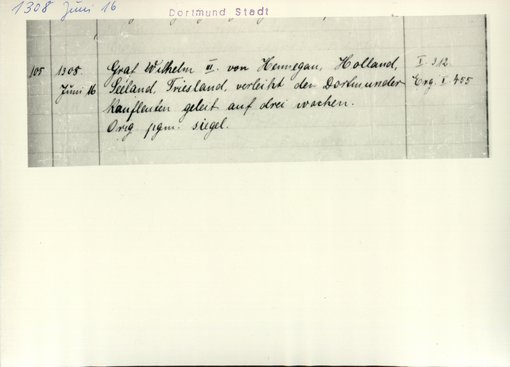 1308 Juni 16
Dortmund Stadt
105 1308. Graf Wilhelm III. von Hennegau, Holland, I 312.
Juni 16 Seeland, Friesland, verleiht den Dortmunder Erg. I 455
Kaufleuten geleit auf drei wochen.
Orig. pgm. siegel.